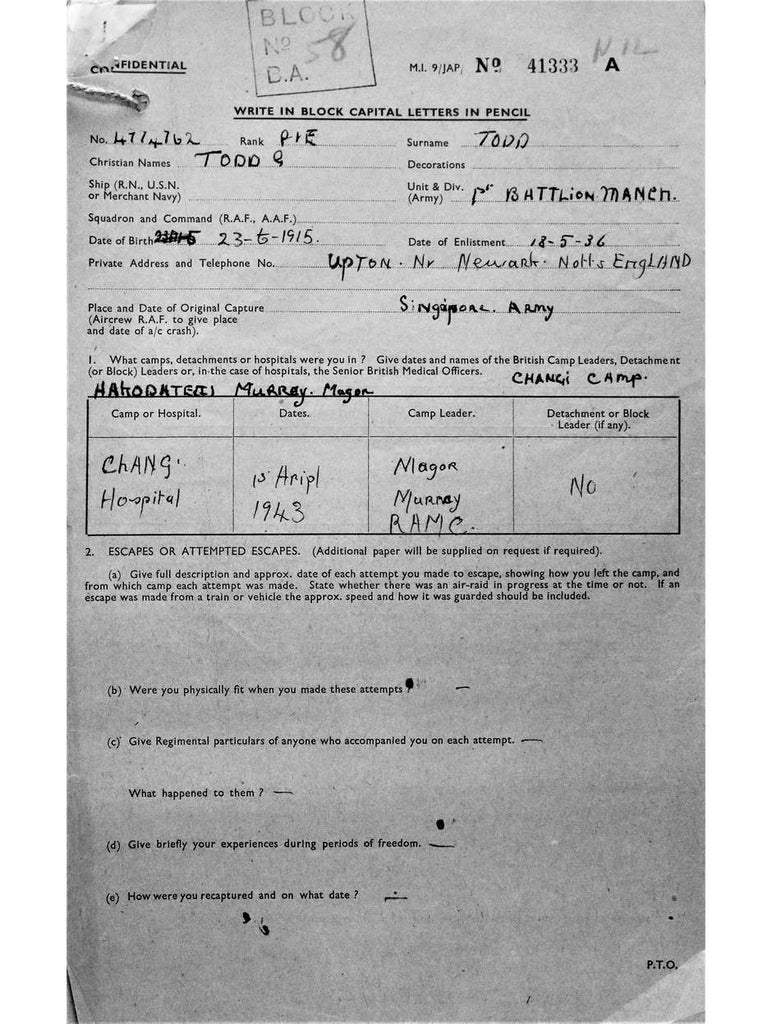 BLOCK
No 58
D.A.
CONFIDENTIAL
M.I. 9/JAP. No 41333 A
WRITE IN BLOCK CAPITAL LETTERS IN PENCIL
No. 4774762 Rank PtE Surname TODD
Christian Names TODD G Decorations
Ship (R.N., U.S.N. or Merchant Navy) Unit & Div. (Army) 1st BATTLION. MANCH.
Squadron and Command (R.A.F., A.A.F.)
Date of Birth 23-6-1915. Date of Enlistment 18-5-36
Private Address and Telephone No. UPTON. Nr Newark. Notts England
Place and Date of Original Capture Singapore. Army
(Aircrew R.A.F. to give place
and date of a/c crash).
1. What camps, detachments or hospitals were you in ? Give dates and names of the British Camp Leaders, Detachment
(or Block) Leaders or, in the case of hospitals, the Senior British Medical Officers. CHANGi CAMP.
Murray. Magor
Camp or Hospital. Dates. Camp Leader. Detachment or Block Leader (if any).
ChANG. 15 Aripl Magor No
Hospital 1943 Murray
RAMC.
2. ESCAPES OR ATTEMPTED ESCAPES. (Additional paper will be supplied on request if required).
(a) Give full description and approx. date of each attempt you made to escape, showing how you left the camp, and
from which camp each attempt was made. State whether there was an air-raid in progress at the time or not. If an
escape was made from a train or vehicle the approx. speed and how it was guarded should be included.
(b) Were you physically fit when you made these attempts ? —
(c) Give Regimental particulars of anyone who accompanied you on each attempt. —
What happened to them ? —
(d) Give briefly your experiences during periods of freedom. —
(e) How were you recaptured and on what date ? —
P.T.O.